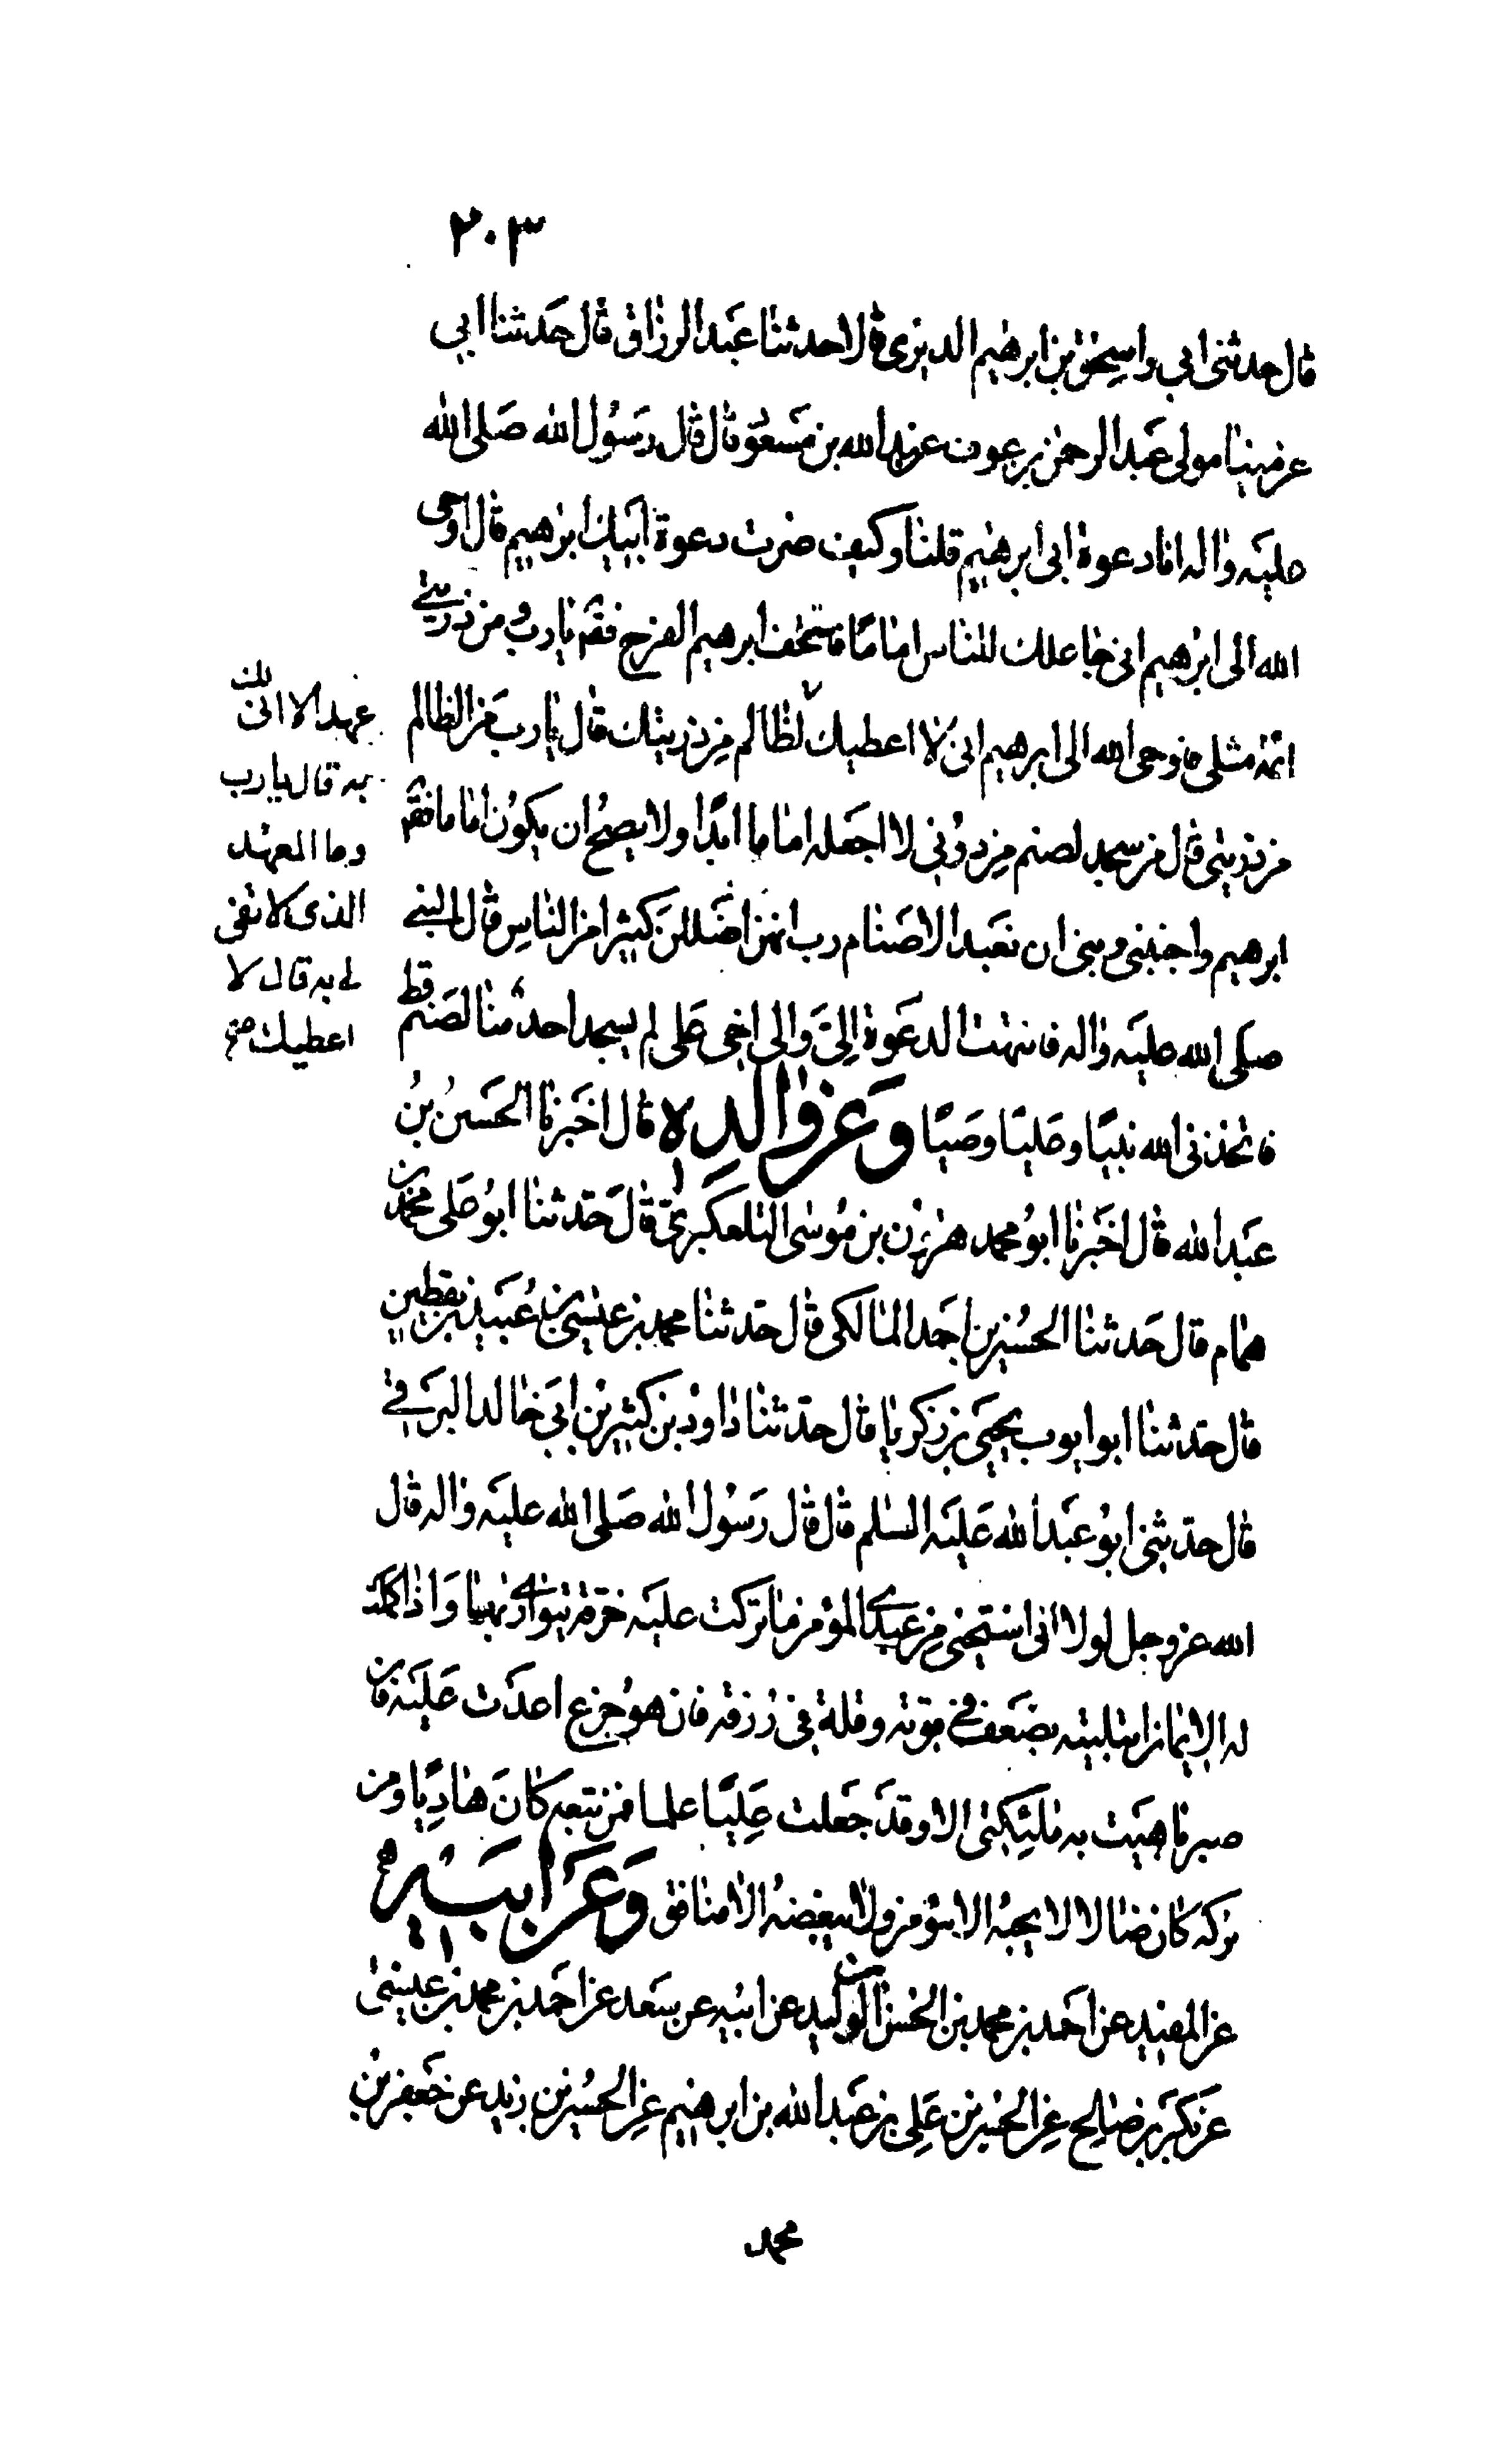 ٢٠٣
قال حدثنى ابي واسحٰق بن ابرهيم الديرى قالا حدثنا عبد الرزاق قال حدثنا ابي
عن مينا مولى عبد الرحمٰن بن عوف عن عبد الله بن مسعود قال قال رسول الله صلى الله
عليه واله انا دعوة ابى ابرهيم قلنا وكيف صرت دعوة ابيك ابرهيم قال اوحى
الله الى ابرهيم انى جاعلك للناس اماما فاستخف ابرهيم الفرح فقم يا رب ومن ذريتى
ائمة مثلى فاوحى الله الى ابرهيم انى لا اعطيك لظالم من ذريتك قال يا رب من الظالم
من ذريتى قال من سجد لصنم من دونى لا اجعله اماما ابدا ولا يصح ان يكون اماما فقم
ابرهيم واجنبنى وبنى ان نعبد الاصنام رب انهن اضللن كثيرا من الناس قال النبى
صلى الله عليه واله فانتهت الدعوة الىّ والى اخى على لم يسجد احد منا لصنم قط
فاتخذنى الله نبيا وعليا وصيا وعن والده قال اخبرنا الحسين بن
عبد الله قال اخبرنا ابو محمد هرون بن موسى التلعكبرى قال حدثنا ابو على محمد بن
همام قال حدثنا الحسين بن احمد المالكى قال حدثنا محمد بن عيسى بن عبيد بن يقطين
قال حدثنا ابو ايوب يحيى بن زكريا قال حدثنا داود بن كثير بن ابى خالد البرقى
قال حدثنى ابو عبد الله عليه السلم قال قال رسول الله صلى الله عليه واله قال
الله عز وجل لولا انى استحى من عبدى المؤمن ما تركت عليه خرقة يتوارى بها واذا كملت
له الايمان ابتليته بضعف فى قوته وقلة فى رزقه فان هو جزع اعدت عليه فان
صبر باهيت به ملئكتى الا وقد جعلت عليا علما فمن تبعه كان هاديا ومن
تركه كان ضالا لا يحبه الا مؤمن ولا يبغضه الا منافق وعن ابيه
عن المفيد عن احمد بن محمد بن الحسن بن الوليد عن ابيه عن سعد عن احمد بن محمد بن عيسى
عن بكر بن صالح عن الحسين بن على بن عبد الله بن ابرهيم عن الحسين بن زيد عن جعفر بن
محمد
عهد الا انى لك
به قال يا رب
وما العهد
الذى لا تفى
لى به قال لا
اعطيك صح